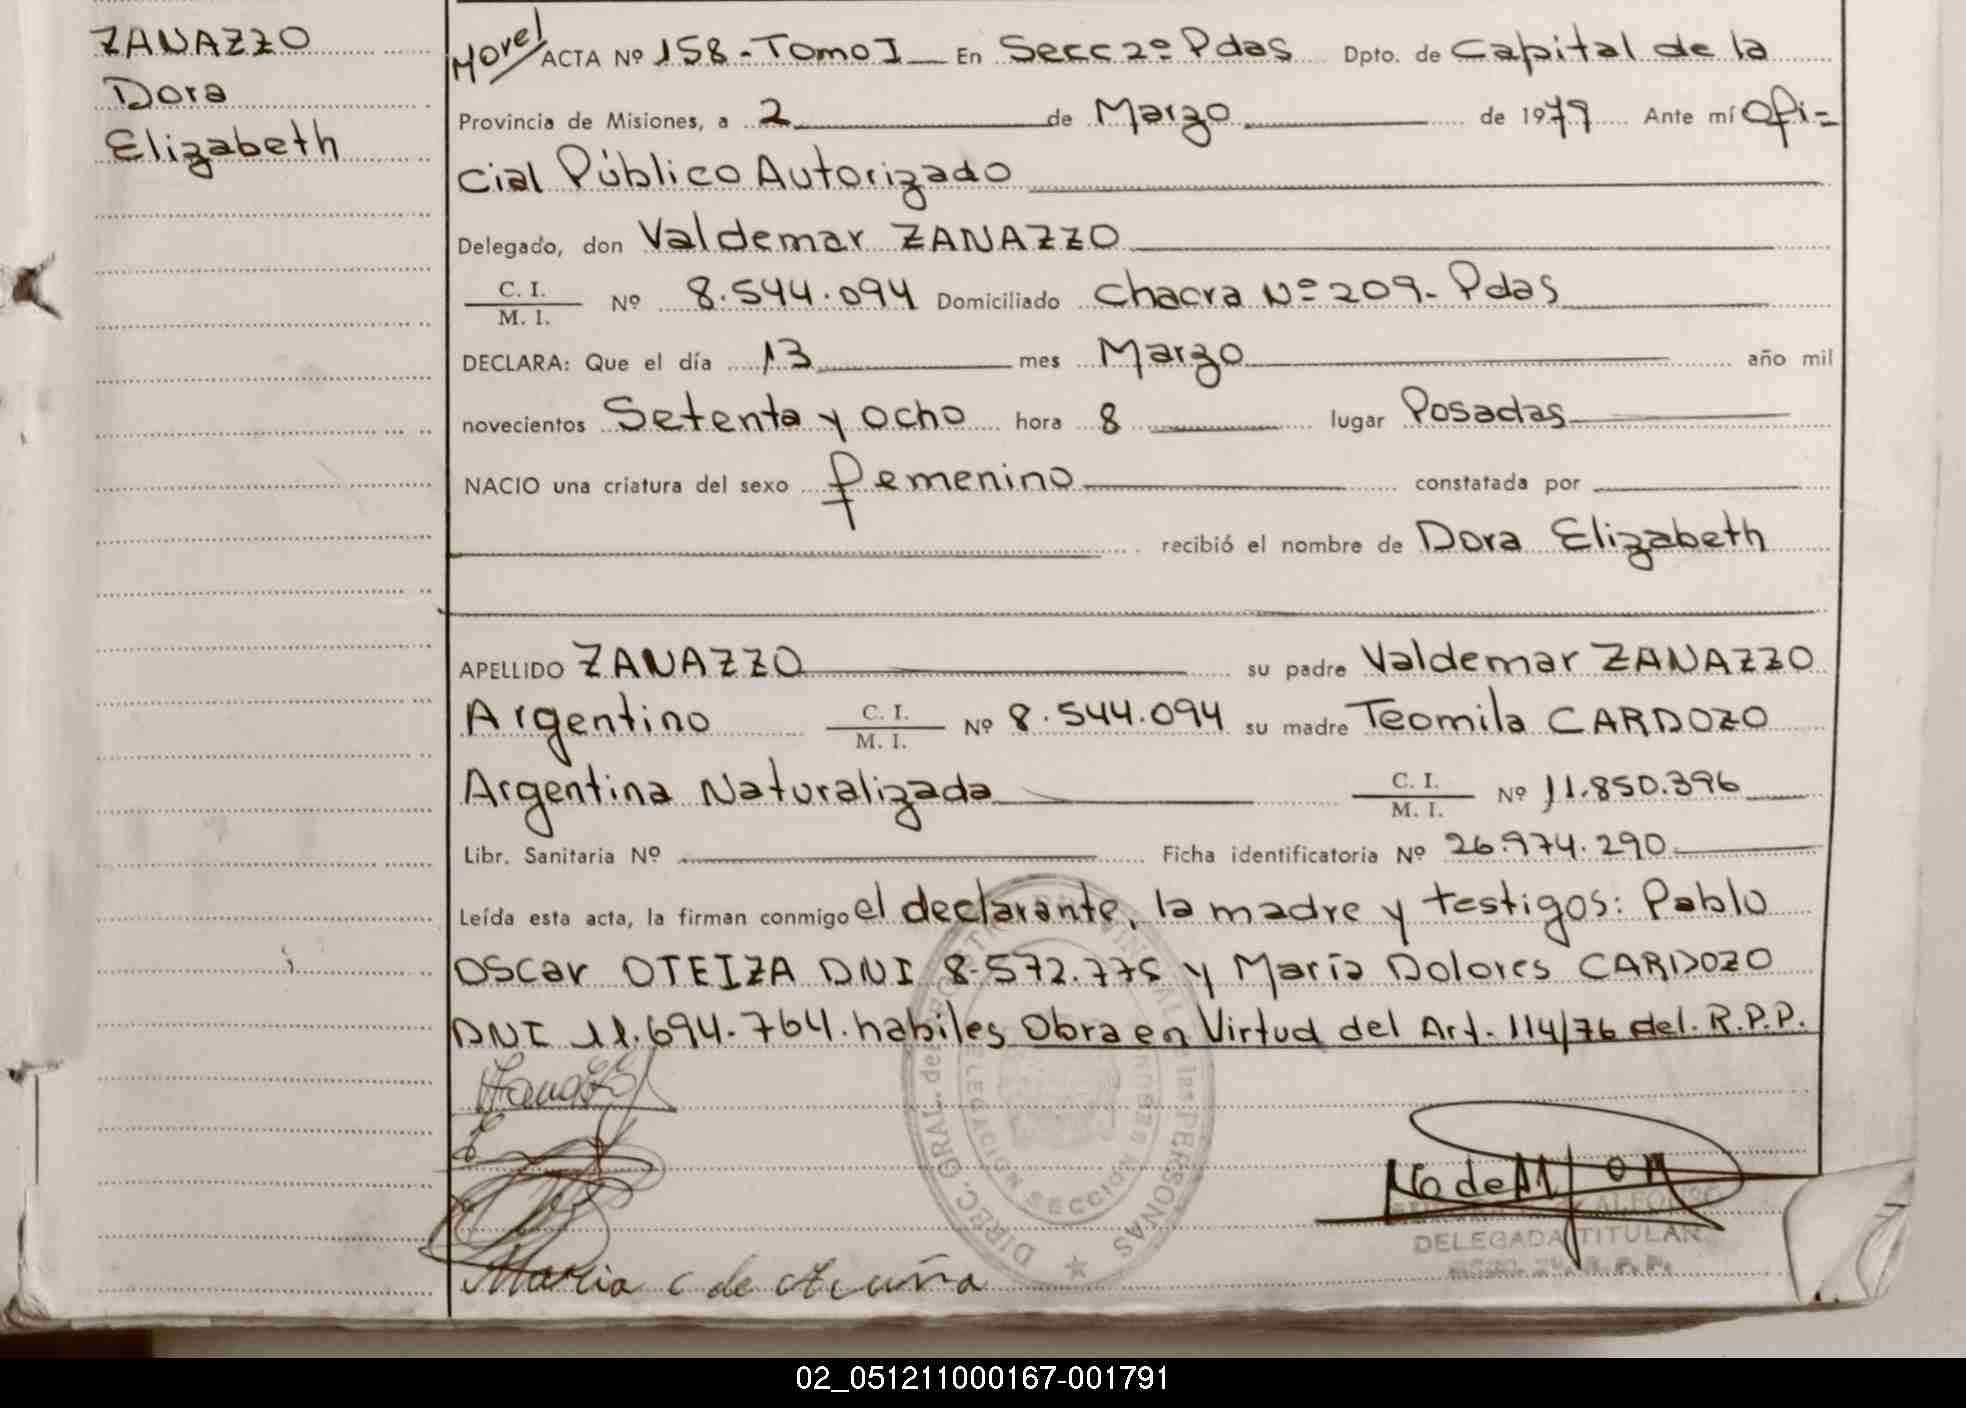 ZANAZZO
Dora
Elizabeth
Morel ACTA Nº 158-Tomo I En Secc 2º Pdas Dpto. de Capital de la
Provincia de Misiones, a 2 de Marzo de 1979 Ante mí Ofi=
cial Público Autorizado
Delegado, don Valdemar ZANAZZO
C. I.
M. I. Nº 8.544.094 Domiciliado Chacra Nº 209- Pdas
DECLARA: Que el día 13 mes Marzo año mil
novecientos Setenta y ocho hora 8 lugar Posadas
NACIO una criatura del sexo femenino constatada por
recibió el nombre de Dora Elizabeth
APELLIDO ZANAZZO su padre Valdemar ZANAZZO
Argentino C. I. M. I. Nº 8.544.094 su madre Teomila CARDOZO
Argentina Naturalizada C. I. M. I. Nº 11.850.396
Libr. Sanitaria Nº Ficha identificatoria Nº 26.974.290
Leída esta acta, la firman conmigo el declarante, la madre y testigos: Pablo
Oscar OTEIZA DNI 8.572.775 y María Dolores CARDOZO
DNI 11.694.764. habiles Obra en Virtud del Art. 114/76 del. R.P.P.
DIREC. GRAL. del PROVINCIAL de las PERSONAS
DELEGACION SECCION
Maria C de Acuña
ALFONSO
DELEGADA TITULAR
02_051211000167-001791